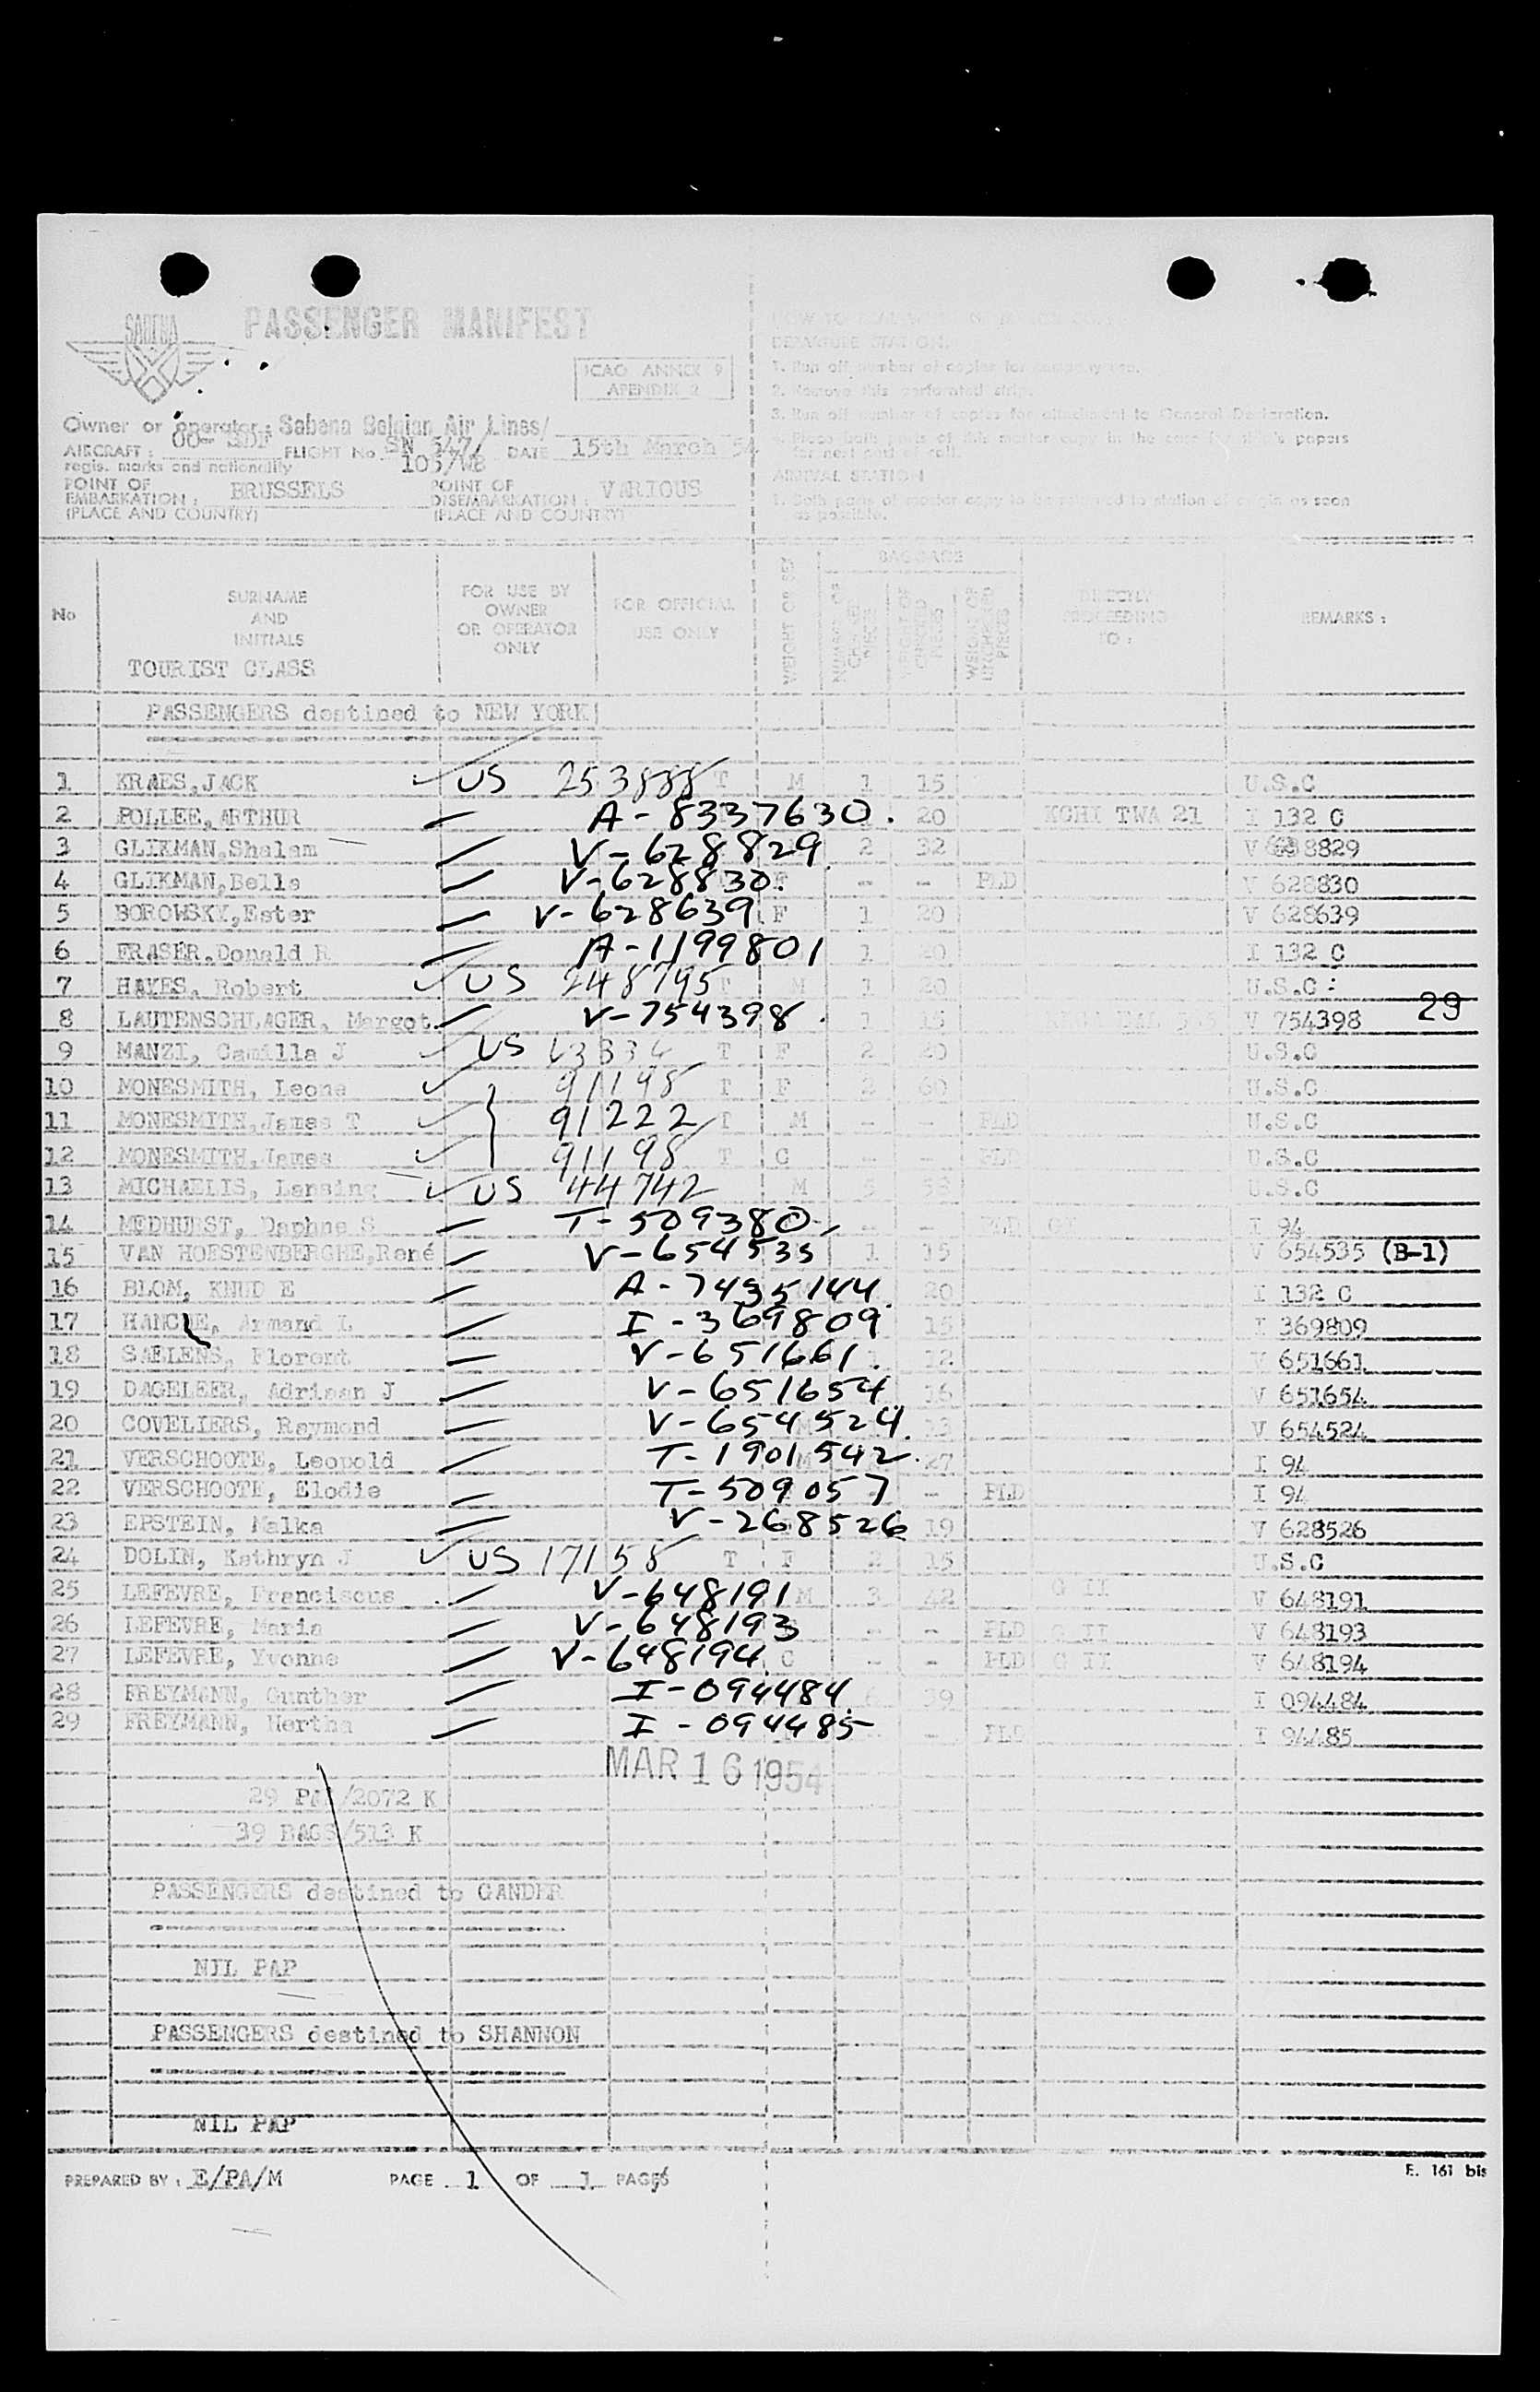 SABENA
PASSENGER MANIFEST
ICAO ANNEX 9
APENDIX 2
DEPARTURE STATION:
1. Run off number of copies for
2. Remove this perforated strip.
3. Run off number of copies for attachment to General Declaration.
Owner or operator: Sabena Belgian Air Lines/
AIRCRAFT: OO- SDF FLIGHT No. SN 547/ 103/WB DATE 15th March 54
regis. marks and nationality
POINT OF EMBARKATION: BRUSSELS POINT OF DISEMBARKATION: VARIOUS
(PLACE AND COUNTRY) (PLACE AND COUNTRY)
ARRIVAL STATION
as possible.
No SURNAME AND INITIALS FOR USE BY OWNER OR OPERATOR ONLY FOR OFFICIAL USE ONLY WEIGHT OR SEX BAGGAGE DIRECTLY PROCEEDING TO: REMARKS:
TOURIST CLASS
PASSENGERS destined to NEW YORK
1 KRAES, JACK US 253888 T M 1 15 U.S.C
2 POLLEE, ARTHUR A-8337630. 20 TWA 21 I 132 C
3 GLIKMAN, Shalam V-628829 2 32 V 628829
4 GLIKMAN, Bella V-628830. - - PLD V 628830
5 BOROWSKY, Ester V-628639 F 1 20 V 628639
6 FRASER, Donald R A-1199801 1 20 I 132 C
7 HAYES, Robert US 248795 T M 1 20 U.S.C
29
8 LAUTENSCHLAGER, Margot V-754398. 1 15 V 754398
9 MANZI, Camilla J US T F 2 20 U.S.C
10 MONESMITH, Leona 91198 T F 2 60 U.S.C
11 MONESMITH, James T 91222 T M - - PLD U.S.C
12 MONESMITH, James 91198 T C - - PLD U.S.C
13 MICHAELIS, Lansing US 44742 M 5 58 U.S.C
14 MEDHURST, Daphne S T-509380 - - PLD I 94
15 VAN HOESTENBERGHE, René V-654535 1 15 V 654535 (B-1)
16 BLOM, KNUD E A-7435144 20 I 132 C
17 HANCHE, Armand L I-369809 15 I 369809
18 SAELENS, Florent V-651661. 1 12 V 651661
19 DAGELEER, Adriaan J V-651654 16 V 651654
20 COVELIERS, Raymond V-654524 M 13 V 654524
21 VERSCHOOTE, Leopold T-1901542. M 27 I 94
22 VERSCHOOTE, Elodie T-509057 - PLD I 94
23 EPSTEIN, Malka V-268526 19 V 628526
24 DOLIN, Kathryn J US 17158 T F 2 15 U.S.C
25 LEFEVRE, Franciscus V-648191 M 3 42 G II V 648191
26 LEFEVRE, Maria V-648193 - - PLD G II V 648193
27 LEFEVRE, Yvonne V-648194 C - - PLD G II V 648194
28 FREYMANN, Gunther I-094484 6 39 I 094484
29 FREYMANN, Hertha I-094485 - PLD I 94485
MAR 16 1954
29 PAP/2072 K
39 BAGS/513 K
PASSENGERS destined to GANDER
NIL PAP
PASSENGERS destined to SHANNON
NIL PAP
PREPARED BY: E/PA/M PAGE 1 OF 1 PAGES
E. 161 bis